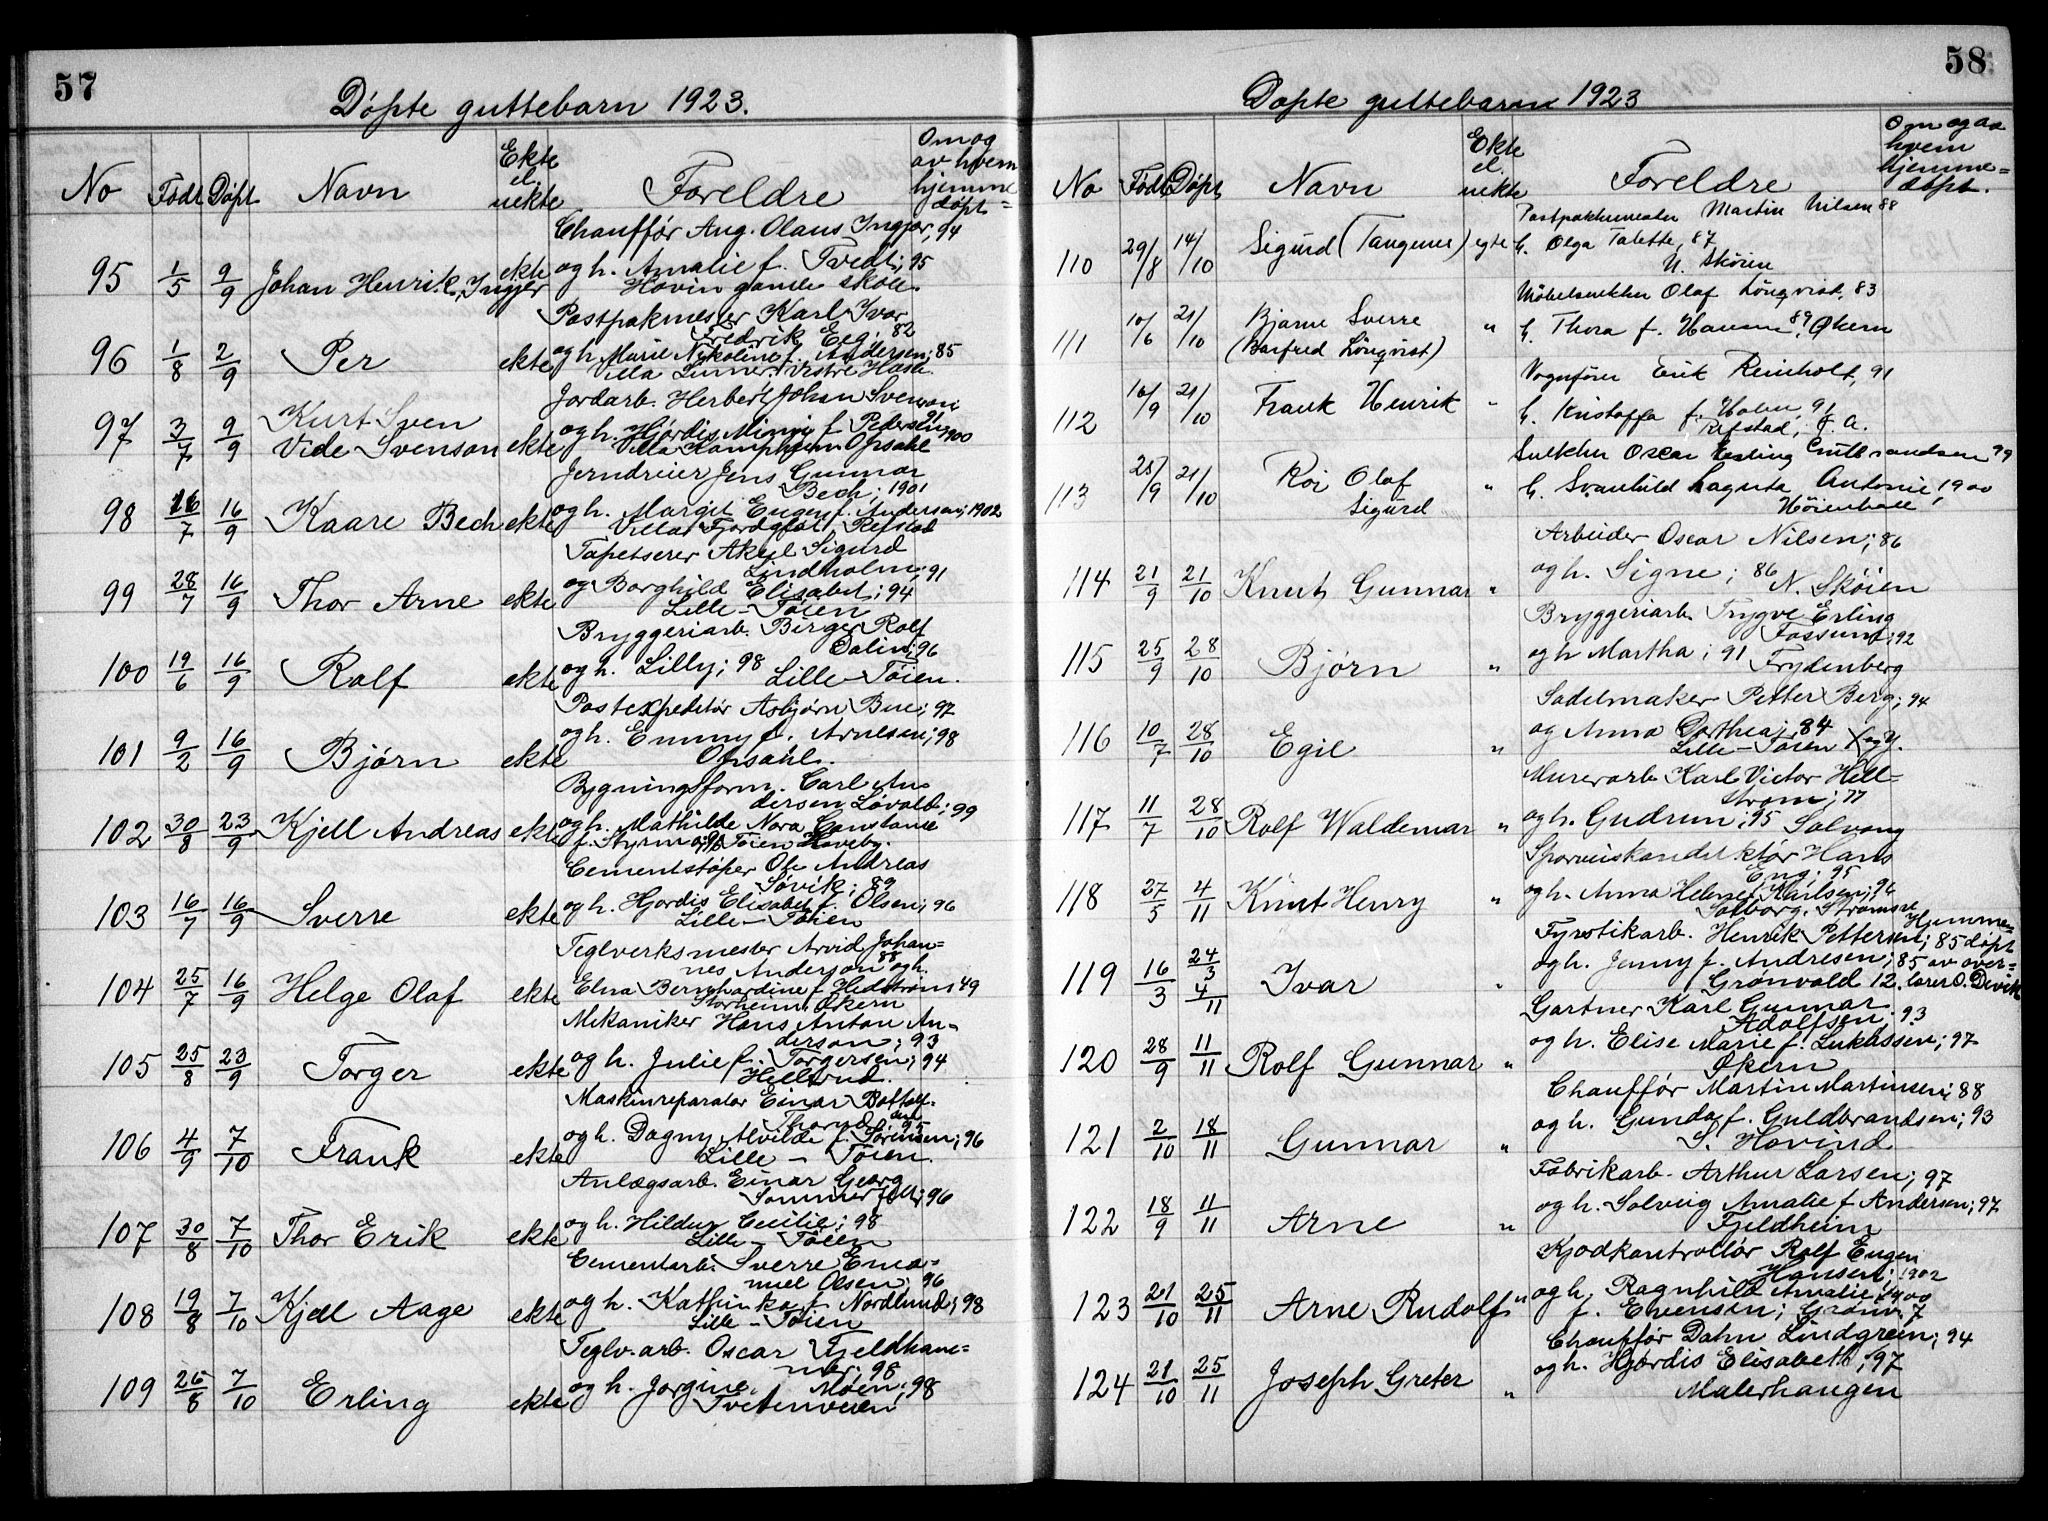 57
Døpte guttebarn 1923.
No Født Døpt Navn Ekte el. uekte Foreldre Om og av hvem hjemme=døpt
Chauffør Aug. Olaus Ingjer, 94
95 1/5 9/9 Johan Henrik Ingjer ekte og h. Amalie f. Tvedt; 95
Hovin gamle skole.
Postpakmester Karl Ivar
Fredrik Eeg; 82
96 1/8 2/9 Per ekte og h. Marie Nykoline f. Andersen; 85
Villa Linner. vistre Hasle.
Jordarb. Herbert Johan Svenson
97 3/7 9/9 Kurt Sven
Vide Svenson ekte og h. Hjørdis Minni f. Pedersen 1900
Villa Kamphjem Opsahl
Jerndreier Jens Gunnar
Bech; 1901
98 16/7 16/9 Kaare Bech ekte og h. Margit Eugen f. Anderson; 1902
Villa Fjordgløt Refstad
Tapetserer Aksel Sigurd
Lindholm; 91
99 28/7 16/9 Thor Arne ekte og Borghild Elisabet; 94
Lille-Tøien
Bryggeriarb. Birger Rolf
Dalin; 96
100 19/6 16/9 Rolf ekte og h. Lilly; 98 Lille-Tøien.
Postexpeditør Asbjørn Bue; 97
101 9/2 16/9 Bjørn ekte og h. Emmy f. Arnesen; 98
Opsahl.
Bygningsform. Carl An-
dersen Løvald; 99
102 30/8 23/9 Kjell Andreas ekte og h. Mathilde Nora Constanse
f. Styrmo; Tøien Hoveby.
Cementstøper Ole Andreas
Søvik; 89
103 16/7 16/9 Sverre ekte og h. Hjørdis Elisabet f. Olsen; 96
Lille-Tøien
Teglverksmester Arvid Johan=
nes Anderson 88 og h.
104 25/7 16/9 Helge Olaf ekte Elna Bernhardine f. Hedstrøm
Storheim Økern
Mekaniker Hans Anton An=
derson; 93
105 25/8 23/9 Torger ekte og h. Julie f. Torgersen; 94
Hellerud.
Maskinreparatør Einar Bottolf-
Thorud; 95
106 4/9 7/10 Frank ekte og h. Dagny Alvilde f. Sørensen; 96
Lille-Tøien.
Anlægsarb. Einar Georg
Sommerfelt; 96
107 30/8 7/10 Thor Erik ekte og h. Hildur Cecilie; 98
Lille-Tøien
Cementarb. Sverre Ema=
nuel Olsen; 96
108 19/8 7/10 Kjell Aage ekte og h. Kathinka f. Nordlund; 98
Lille-Tøien
Teglv.arb. Oscar Fjeldham=
mer; 98
109 26/8 7/10 Erling ekte og h. Jørgine Moen; 98
Tvetenveien
58
Døpte guttebarn 1923
No Født Døpt Navn Ekte el. uekte Foreldre Om og av hvem hjemme=døpt.
Postpakkmester Martin Nilsen 88
110 29/8 14/10 Sigurd (Tangenes) egte h. Olga Talette, 87
N. Skøien
Møbelsnekker Olaf Lönqvist, 83
111 10/6 21/10 Bjarne Sverre
(Barfred Lönqvist) " h. Thora f. Hansen 89, Økern
Vognfører Erik Reinholt, 91
112 10/9 21/10 Frank Henrik " h. Kristoffa f. Holm, 91
Refstad, Ø. A.
Snekker Oscar Erling Gulbrandsen 99
113 25/9 21/10 Roi Olaf
Sigurd " h. Svanhild Lagusta Antonie, 1900
Høienhall
Arbeider Oscar Nilsen; 86
114 21/9 21/10 Knut Gunnar " og h. Signe; 86 N. Skøien
Bryggeriarb. Trygve Erling
Fossum; 92
115 25/9 28/10 Bjørn " og h Martha; 91 Frydenberg
Sadelmaker Petter Berg; 94
116 10/7 28/10 Egil " og Anna Dorthea; 84
Lille-Tøien
Murerarb. Karl Victor Hell=
strøm; 77
117 11/7 28/10 Rolf Waldemar " og h. Gudrun; 95 Solvang
Sporveiskonduktør Hans
Eng; 95
118 27/5 4/11 Knut Henry " og h. Anna Helene f. Karlsen; 96
Solborg. Strømsv.
Fyrstikarb. Henrik Pettersen; 85 Hjemme-døpt
119 16/3 24/3 4/11 Ivar " og h. Jenny f. Andresen; 85 av over=
Grønvold 12. lærer O. Devik
Gartner Karl Gunnar
Adolfsen 93
120 28/9 11/11 Rolf Gunnar " og h. Elise Marie f. Lukassen; 97
Økern
Chauffør Martin Martinsen; 88
121 2/10 18/11 Gunnar " og h. Gunda f. Guldbrandsen; 93
S. Hovind
Fabrikarb. Arthur Larsen; 97
122 18/9 11/11 Arne " og h. Solveig Amalie f. Andersen; 97
Fjeldheim
Kjødkontrollør Rolf Eugen
Hansen; 1902
123 21/10 25/11 Arne Rudolf " og h. Ragnhild Amalie 1900
f. Evensen; Grønv. 7
Chauffør Dahn Lindgren; 94
124 21/10 25/11 Joseph Greter " og h. Hjørdis Elisabeth; 97
Malerhaugen